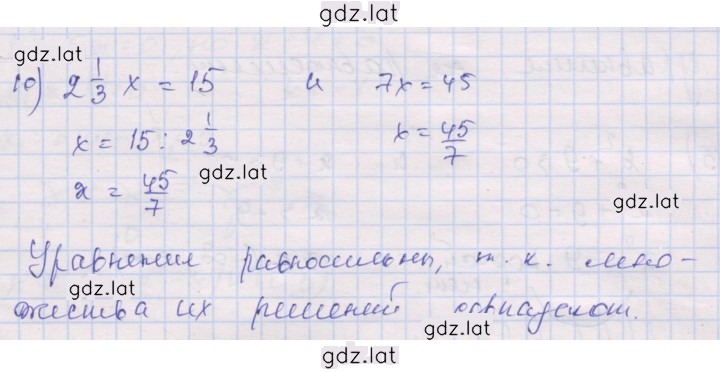 gdz.lat
gdz.lat
10) 2 1/3 x = 15 и 7x = 45
x = 15 : 2 1/3 x = 45/7
gdz.lat
x = 45/7
gdz.lat
Уравнения равносильны, т. к. мно-
gdz.lat
жества их решений совпадают.
gdz.lat
gdz.lat